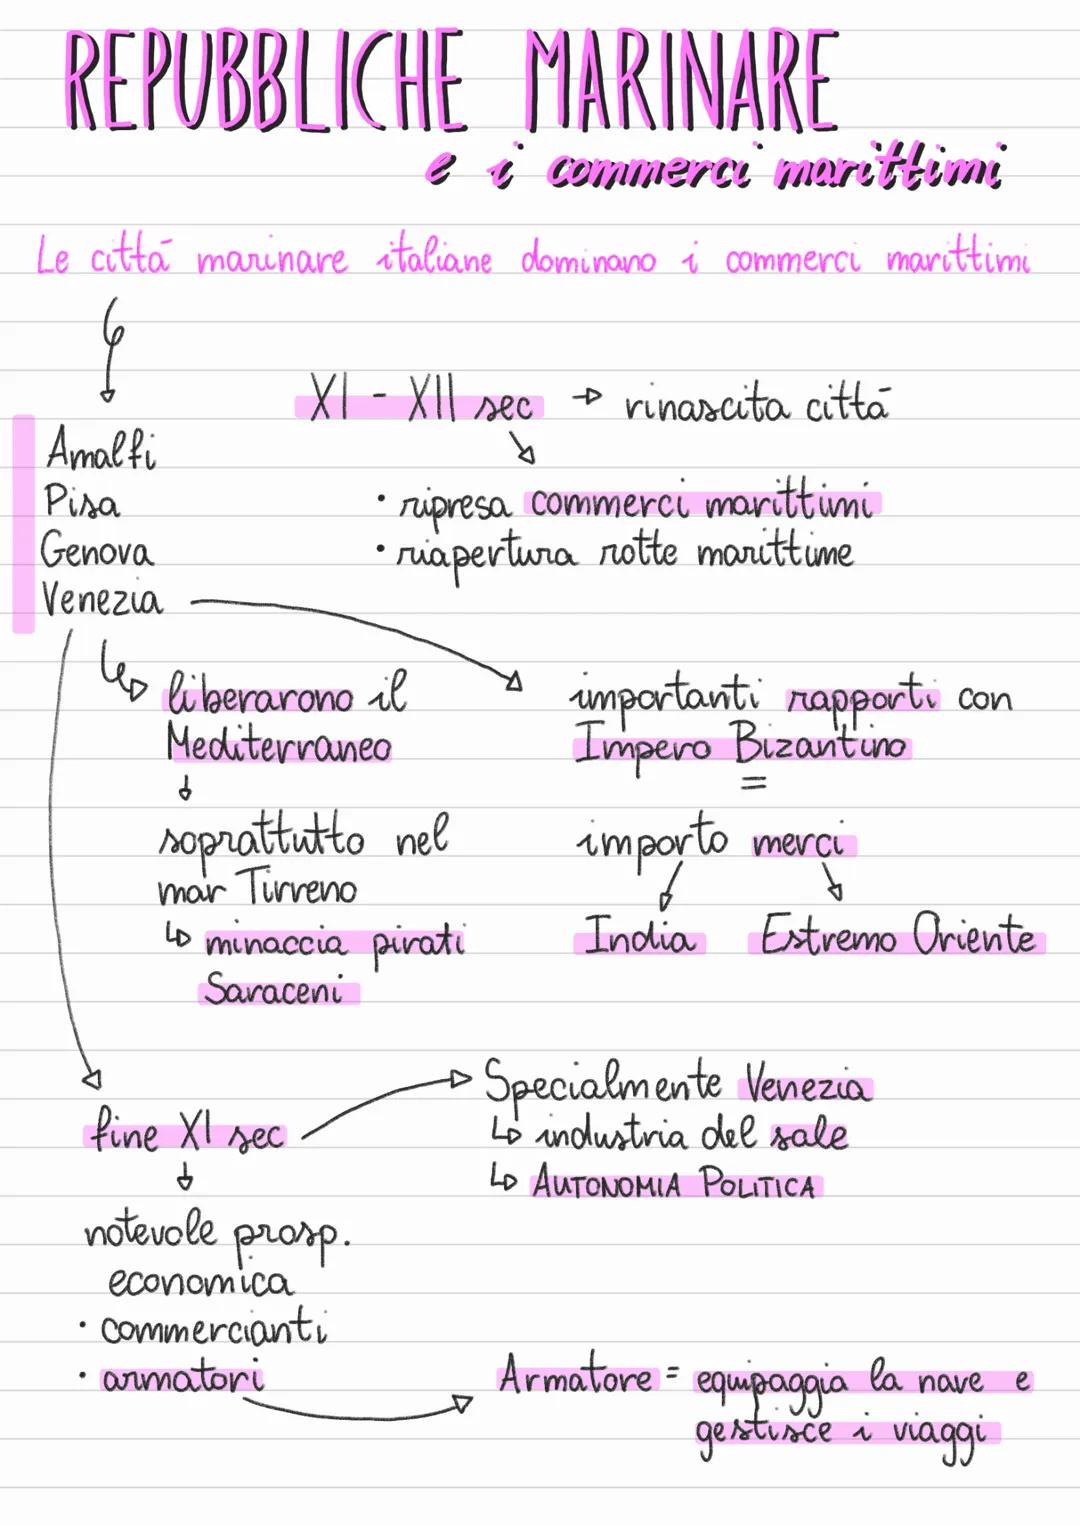 REPUBBLICHE MARINARE
e i commerci marittimi
Le cittā marinare italiane dominano i commerci marittimi
XI - XII sec → rinascita cittā
Amalfi
Pisa
Genova
Venezia
• ripresa commerci marittimi
• riapertura rotte marittime
liberarono il
Mediterraneo
↓
soprattutto nel
mar Tirreno
↳ minaccia pirati
Saraceni
importanti rapporti con
Impero Bizantino
=
importo merci
India Estremo Oriente
fine XI sec
↓
notevole prosp.
economica
• commercianti
• armatori
Specialmente Venezia
↳ industria del sale
↳ AUTONOMIA POLITICA
Armatore = equipaggia la nave e
gestisce i viaggi